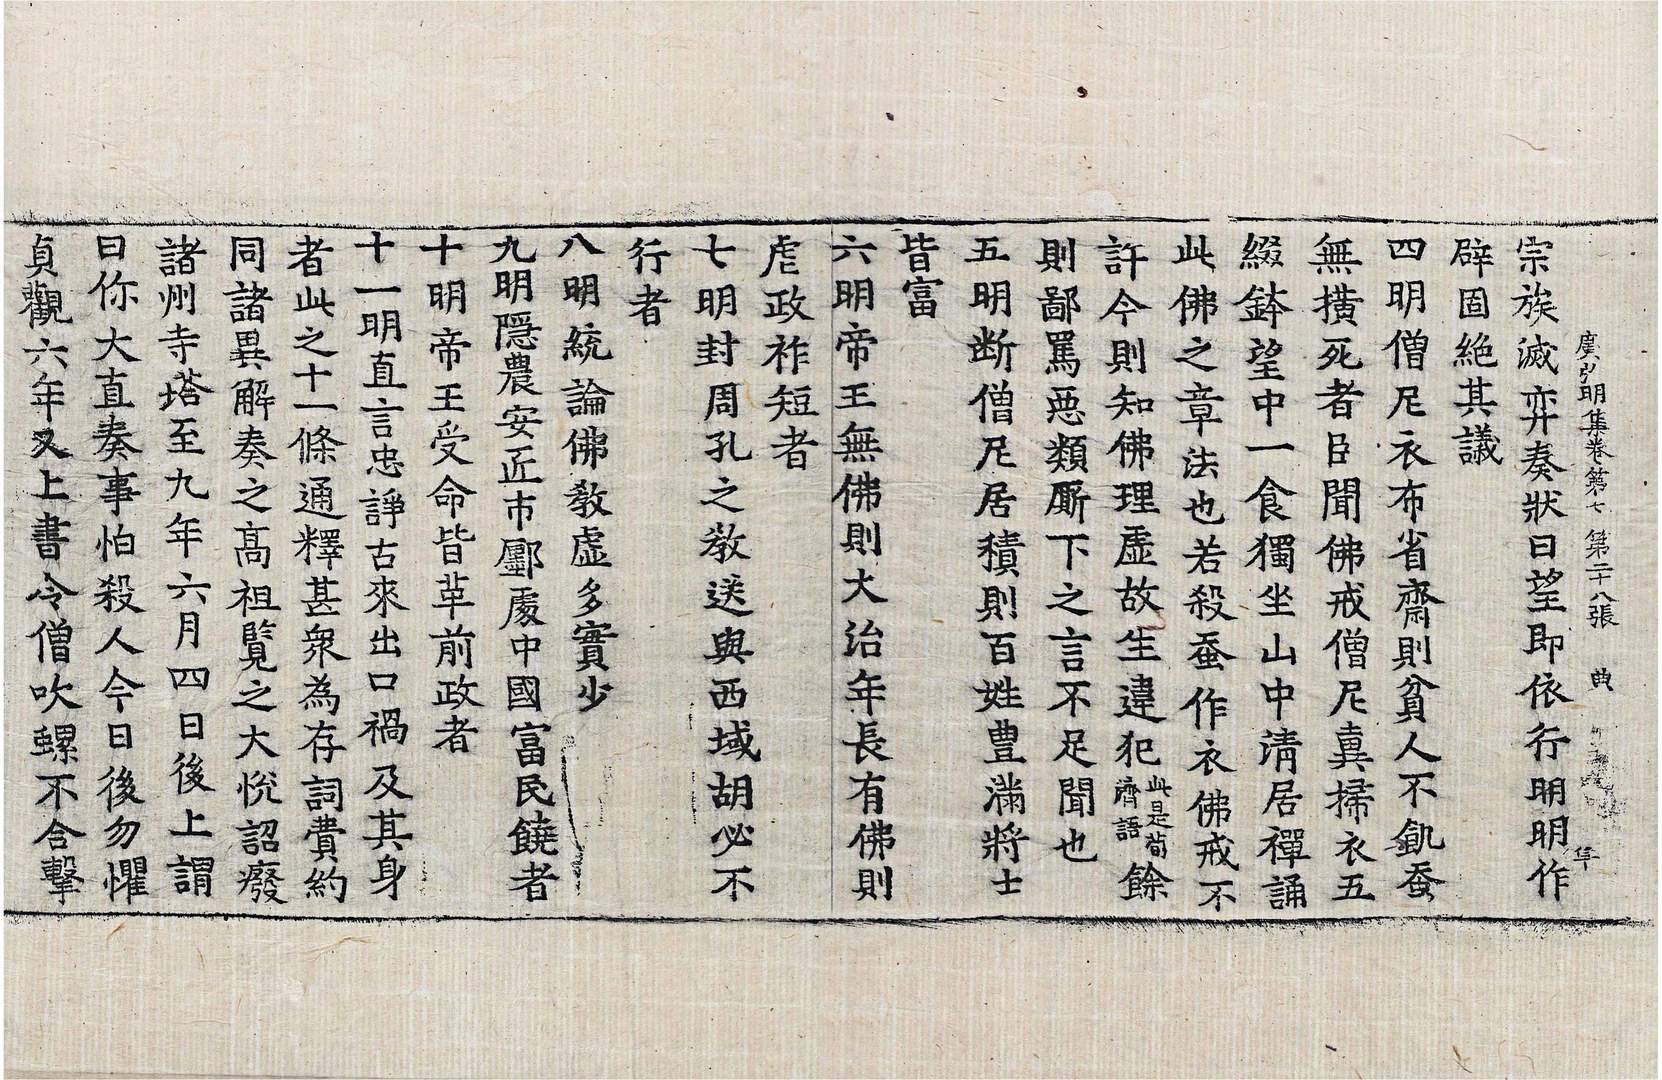 廣弘明集卷第七　第二十八張　典
宗族滅弃奏狀曰望即依行明明作
辟固絶其議
四明僧尼衣布省齋則貧人不飢蚕
無横死者臣聞佛戒僧尼糞掃衣五
綴鉢望中一食獨坐山中清居禪誦
此佛之章法也若殺蚕作衣佛戒不
許今則知佛理虛故生違犯此是荀濟語餘
則鄙罵惡類厮下之言不足聞也
五明断僧尼居積則百姓豊滿將士
皆富
六明帝王無佛則大治年長有佛則
虐政祚短者
七明封周孔之教送與西域胡必不
行者
八明統論佛教虛多實少
九明隱農安近市鄽處中國富民饒者
十明帝王受命皆革前政者
十一明直言忠諍古來出口禍及其身
者此之十一條通釋甚衆為存詞費約
同諸異解奏之髙祖覧之大悅詔癈
諸州寺塔至九年六月四日後上謂
曰你大直奏事怕殺人今日後勿懼
貞觀六年又上書令僧吹螺不合擊